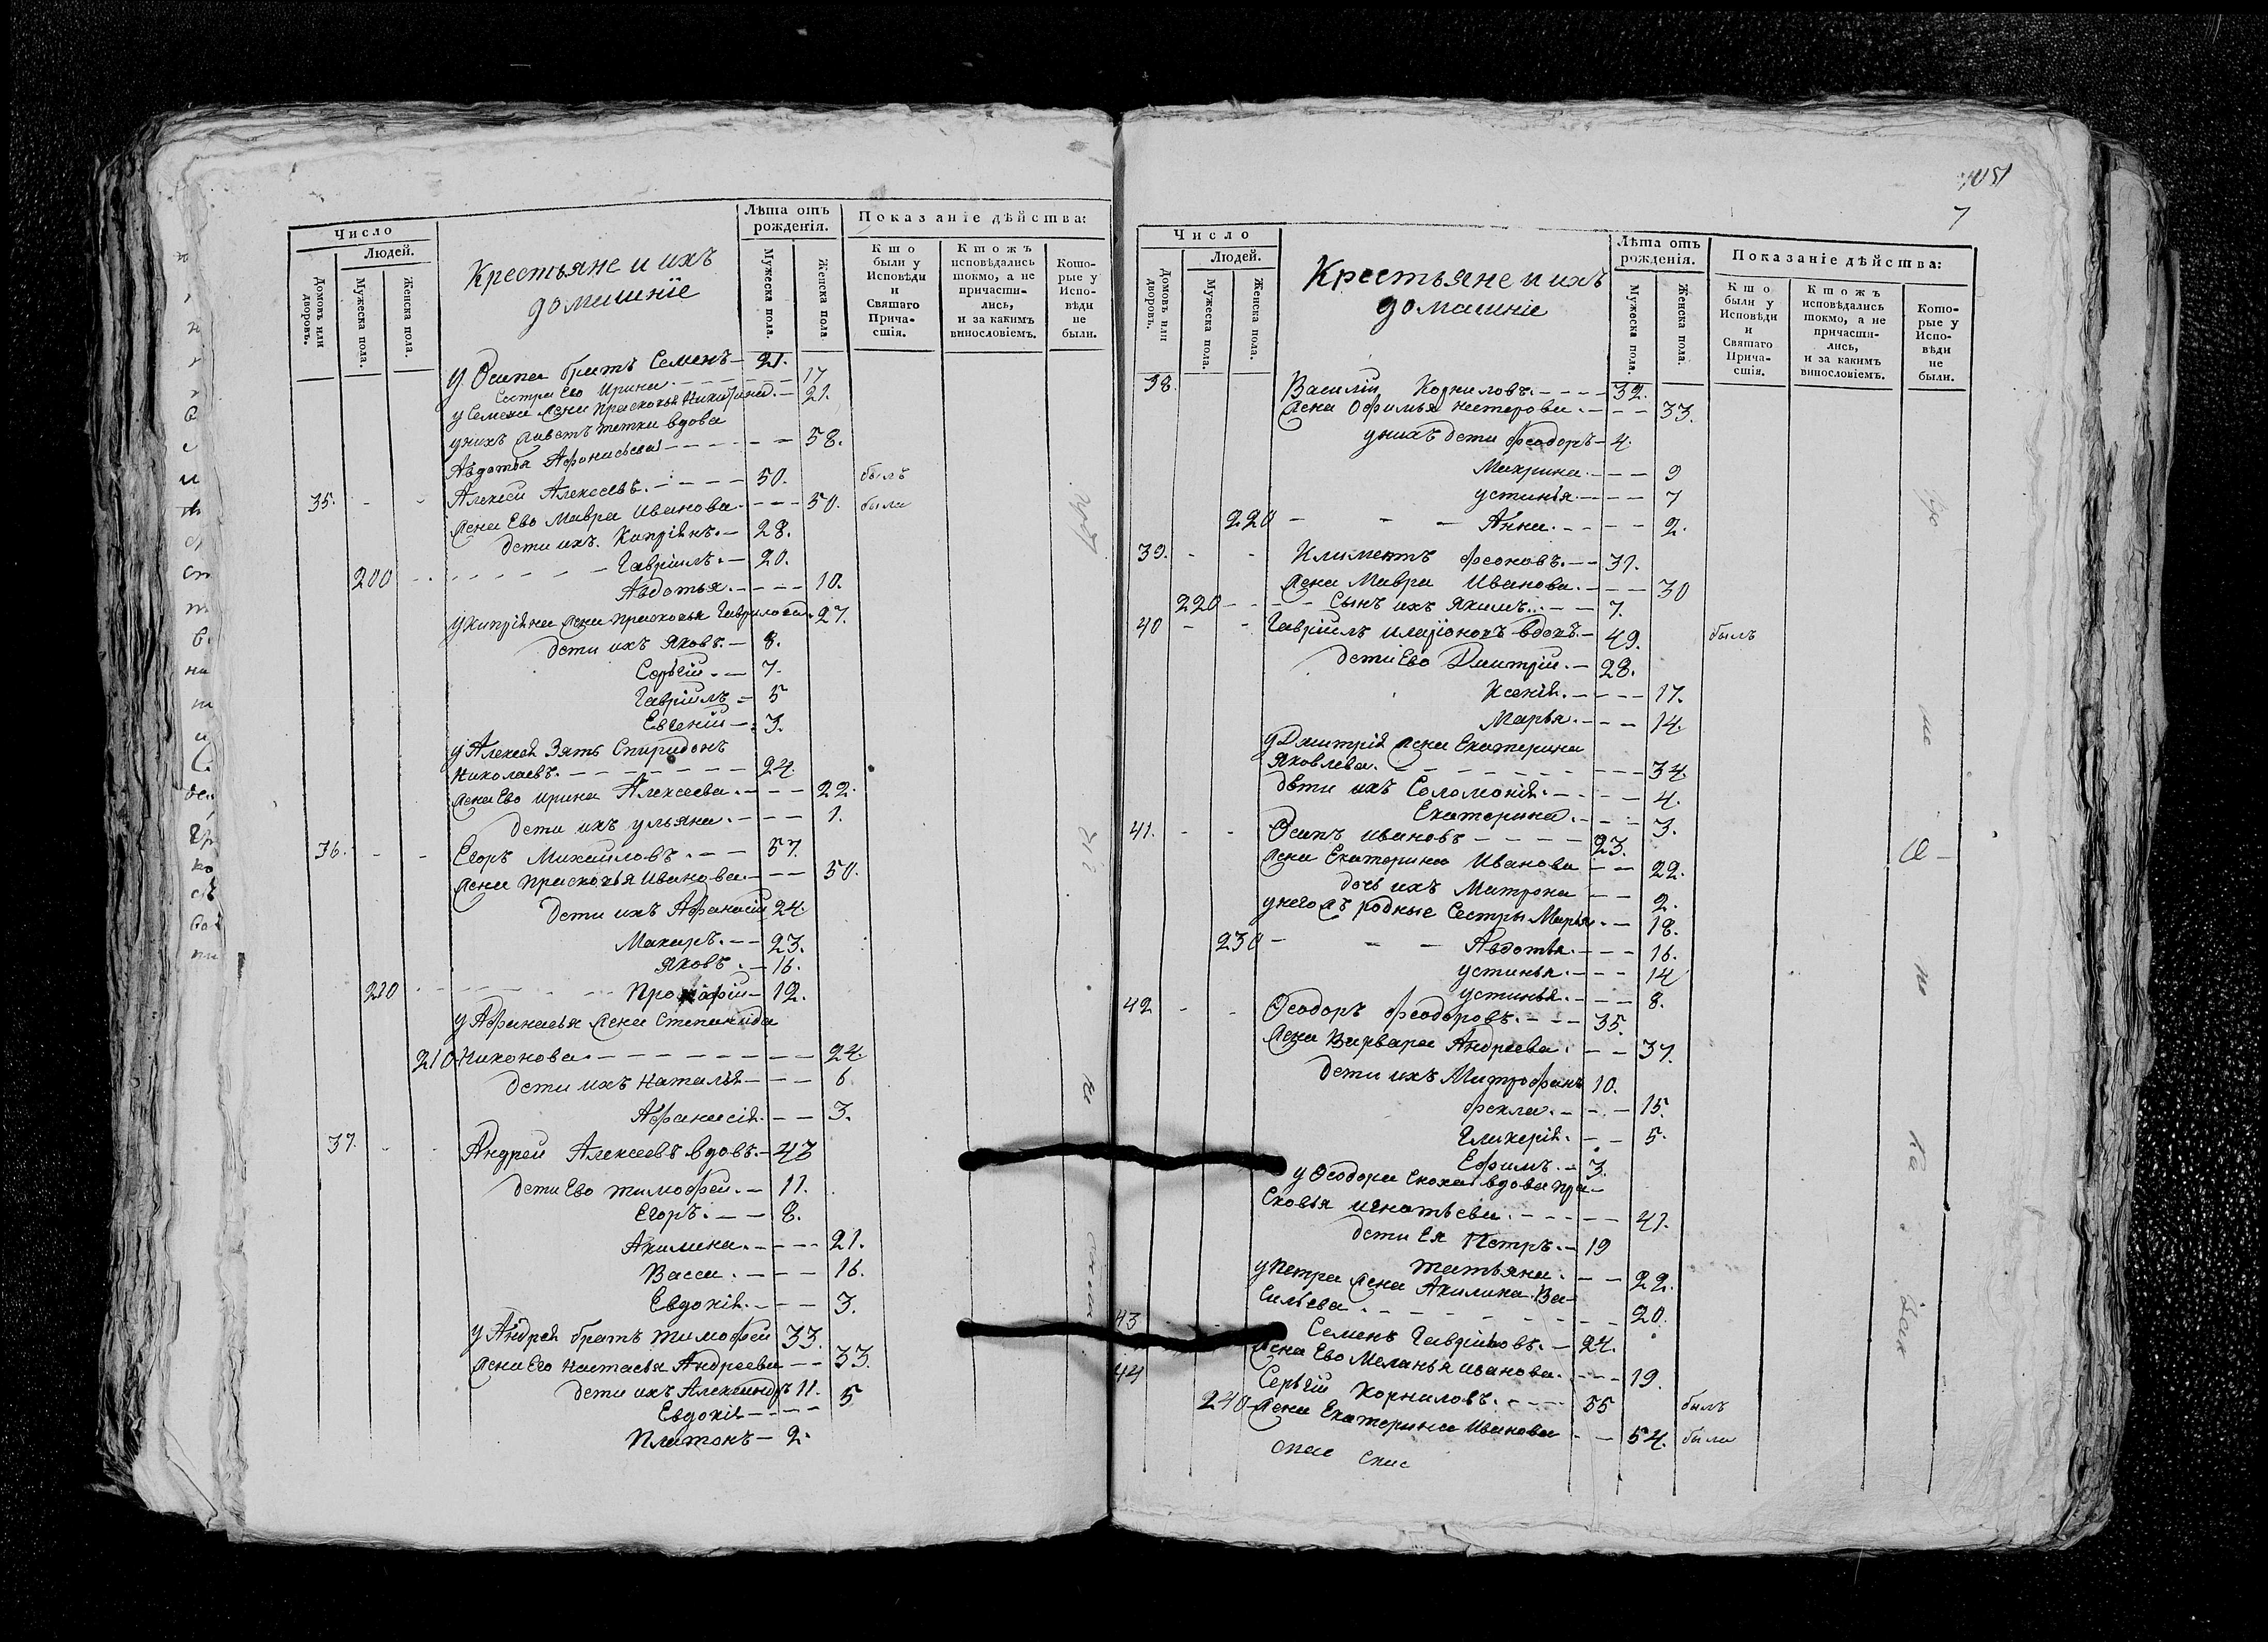 Число
Людей.
Домовъ или дворовъ.
Мужеска пола.
Женска пола.
Крестьяне и ихъ
домашніе
Лѣта отъ рожденія.
Мужеска пола.
Женска пола.
Показаніе дѣйства:
Кто были у Исповѣди и Святаго Причастія.
Ктожъ исповѣдались токмо, а не причастились, и за какимъ винословіемъ.
Которые у Исповѣди не были.
У Осипа братъ Семенъ — 21.
Сестра Ево Ирина — 17
у Семена жена Прасковья — 21.
у нихъ живетъ тетка вдова
Авдотья Афонасьева — 58.
35. Алексѣй Алексѣевъ. — 50. былъ
жена Ево Мавра Иванова — 50. была
дети ихъ. Кипріянъ. — 28.
200 Гавріилъ. — 20.
Авдотья. — 10.
у Кипріяна жена Прасковья Гаврилова 27.
дети ихъ Яковъ. — 8.
Сергій. — 7.
Гавріилъ — 5
Евгеній — 3.
у Алексѣя Зять Спиридонъ
Николаевъ. — 24.
жена Ево Ирина Алексеева. — 22.
дети ихъ ульяна. — 1.
36. Егоръ Михаиловъ. — 57.
жена Прасковья Иванова — 50.
дети ихъ Афанасій 24.
Макаръ. — 23.
Яковъ. — 16.
210 Прокофій — 12.
у Афанасья жена Степанида
210 Никонова. — 24.
дети ихъ Наталья — 6
Афанасія. — 3.
37. Андрей Алексеевъ вдовъ. — 43
дети Ево тимофей. — 11.
Егоръ. — 8.
Акилина. — 21.
Васса. — 16.
Евдокія. — 3.
у Андрея братъ тимофей 33.
жена Его Настасья Андреева — 33.
дети ихъ Александръ 11.
Евдокія — 5
Платонъ — 2.
7
Число
Людей.
Домовъ или дворовъ.
Мужеска пола.
Женска пола.
Крестьяне и ихъ
домашніе
Лѣта отъ рожденія.
Мужеска пола.
Женска пола.
Показаніе дѣйства:
Кто были у Исповѣди и Святаго Причастія.
Ктожъ исповѣдались токмо, а не причастились, и за какимъ винословіемъ.
Которые у Исповѣди не были.
38. Василій Корниловъ. — 32.
жена Офимья нестерова. — 33.
у нихъ дети феодоръ — 4.
Макрина. — 9
устинья. — 7
220 Анна. — 2.
39. Климентъ феоновъ. — 31.
жена Мавра Иванова. — 30
220 Сынъ ихъ Якимъ. — 7.
40 Гавріилъ вдовъ. — 49. былъ
дети Ево Дмитрій. — 28.
Ксенія. — 17.
Марья. — 14.
у Дмитрія жена Екатерина
Яковлева. — 34.
дети ихъ Соломонія. — 4.
Екатерина. — 3.
41. Осипъ ивановъ — 23.
жена Екатерина Иванова — 22.
дочь ихъ Матрона — 2.
у негожъ родные Сестры Марья — 18.
230 Авдотья. — 16.
устинья. — 14
устинья. — 8.
42 Феодоръ феодоровъ. — 35.
жена Варвара Андреева. — 37.
дети ихъ Митрофанъ 10.
фекла. — 15.
Гликерія. — 5.
Ефимъ. — 3.
у Феодора вдова Пра-
сковья игнатьева. — 41.
дети Ея Петръ. — 19
татьяна. — 22.
у Петра жена Акилина Ва-
сильева. — 20.
43 Семенъ Гавріиловъ. — 24.
жена Ево Меланья иванова. — 19.
44 Сергій Корниловъ. — 55 былъ
240 жена Екатерина Иванова — 54. была